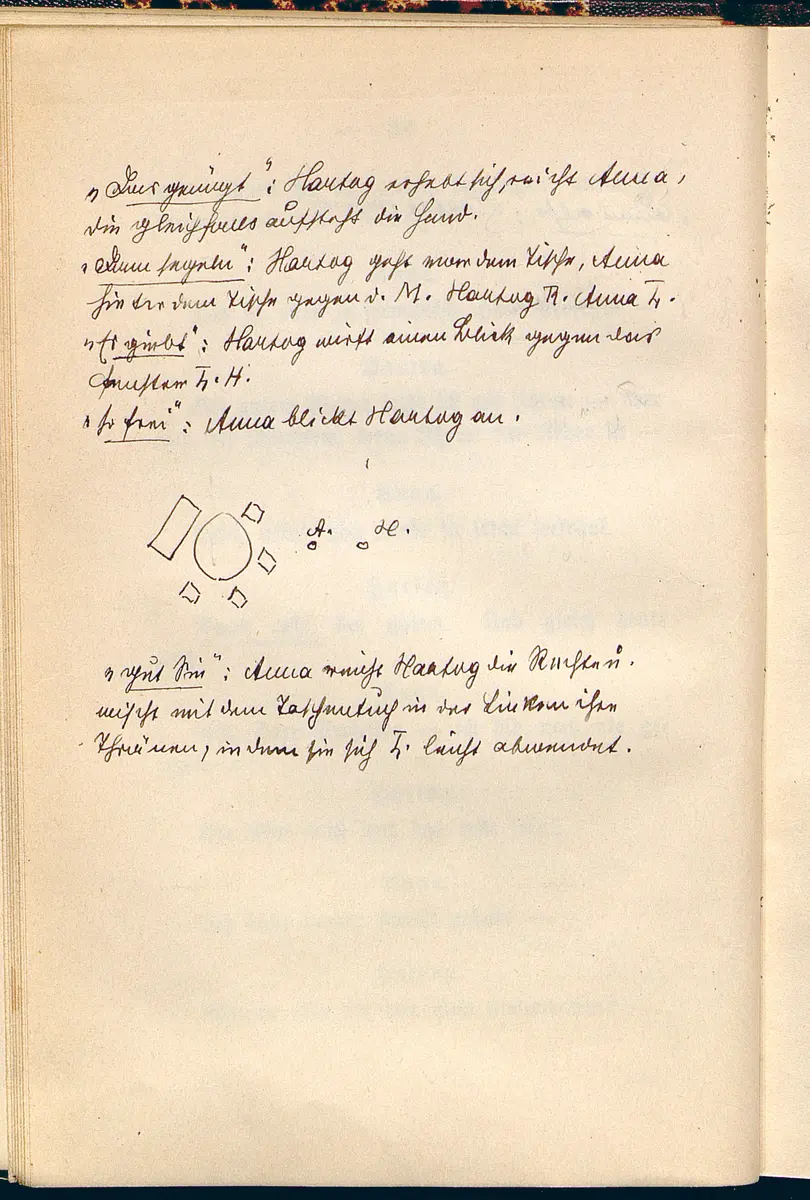 „Das genügt“: Hartog erhebt sich, reicht Anna,
die gleichfalls aufsteht die Hand.
„Dann segeln“: Hartog geht vor dem Tische, Anna
hinter dem Tische gegen d. M. Hartog R. Anna L.
„Es giebt“: Hartog wirft einen Blick gegen das
Fenster L. H.
„so frei“: Anna blickt Hartog an.
A. H.
„gut Sie“: Anna reicht Hartog die Rechte u.
wischt mit dem Taschentuch in der Linken ihre
Thränen, indem sie sich L. leicht abwendet.